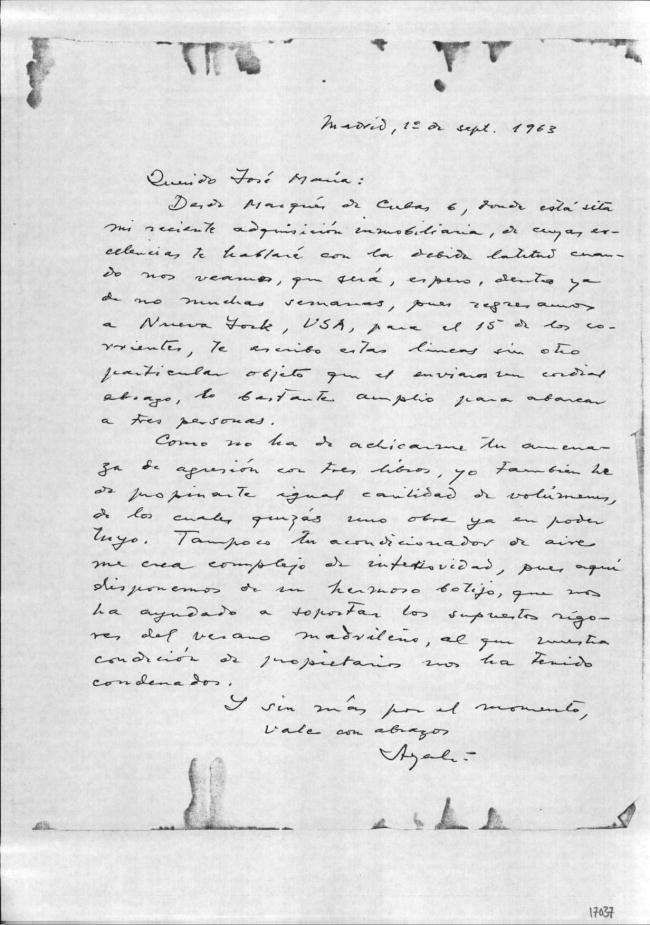 Madrid, 1º de sept. 1963
Querido José María:
Desde Marqués de Cubas 6, donde está sita
mi reciente adquisición inmobiliaria, de cuyas ex-
celencias te hablaré con la debida latitud cuan-
do nos veamos, que será, espero, dentro ya
de no muchas semanas, pues regresamos
a Nueva York, USA, para el 15 de los co-
rrientes, te escribo estas líneas sin otro
particular objeto que el enviaros un cordial
abrazo, lo bastante amplio para abarcar
a tres personas.
Como no ha de achicarme tu amena-
za de agresión con tres libros, yo también he
de propinarte igual cantidad de volúmenes,
de los cuales quizás uno obre ya en poder
tuyo. Tampoco tu acondicionador de aire
me crea complejo de inferioridad, pues aquí
disponemos de un hermoso botijo, que nos
ha ayudado a soportar los supuestos rigo-
res del verano madrileño, al que nuestra
condición de propietarios nos ha tenido
condenados.
Y sin más por el momento,
vale con abrazos
Ayala
17037